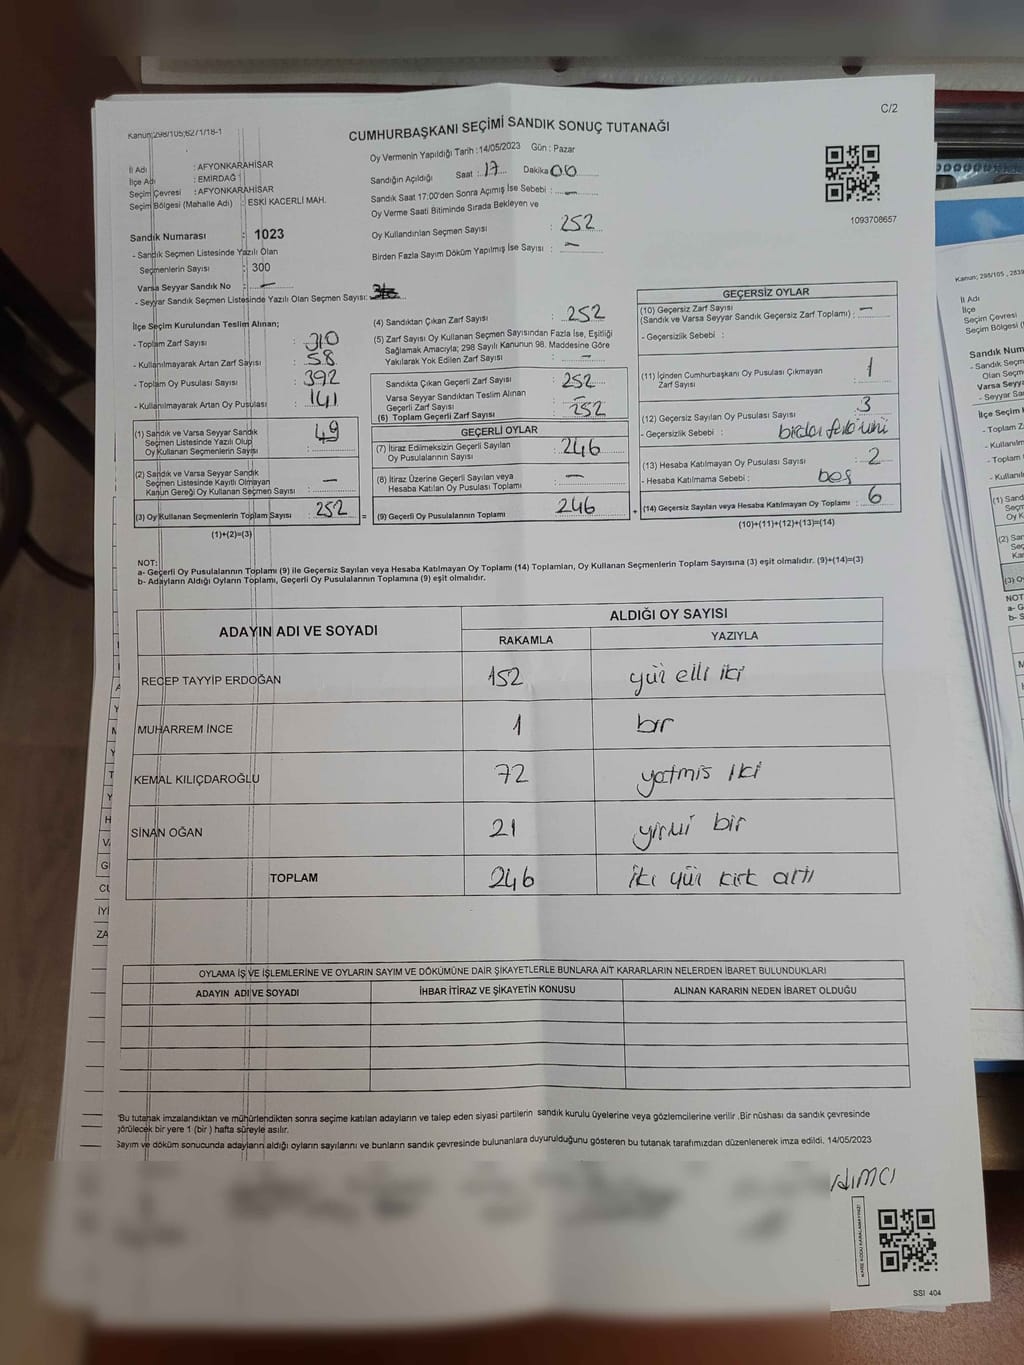 C/2
Kanun;298/105;6271/18-1
CUMHURBAŞKANI SEÇİMİ SANDIK SONUÇ TUTANAĞI
İl Adı : AFYONKARAHİSAR
İlçe Adı : EMİRDAĞ
Seçim Çevresi : AFYONKARAHİSAR
Seçim Bölgesi (Mahalle Adı) : ESKİ KACERLİ MAH.
Sandık Numarası : 1023
- Sandık Seçmen Listesinde Yazılı Olan
Seçmenlerin Sayısı : 300
Varsa Seyyar Sandık No : —
- Seyyar Sandık Seçmen Listesinde Yazılı Olan Seçmen Sayısı:
Oy Vermenin Yapıldığı Tarih : 14/05/2023 Gün : Pazar
Sandığın Açıldığı Saat : 17 Dakika 00
Sandık Saat 17:00'den Sonra Açımış İse Sebebi : —
Oy Verme Saati Bitiminde Sırada Bekleyen ve
Oy Kullandırılan Seçmen Sayısı : 252
Birden Fazla Sayım Döküm Yapılmış İse Sayısı : —
1093708657
İlçe Seçim Kurulundan Teslim Alınan;
- Toplam Zarf Sayısı : 310
- Kullanılmayarak Artan Zarf Sayısı : 58
- Toplam Oy Pusulası Sayısı : 392
- Kullanılmayarak Artan Oy Pusulası : 141
(1) Sandık ve Varsa Seyyar Sandık
Seçmen Listesinde Yazılı Olup
Oy Kullanan Seçmenlerin Sayısı : 49
(2) Sandık ve Varsa Seyyar Sandık
Seçmen Listesinde Kayıtlı Olmayan
Kanun Gereği Oy Kullanan Seçmen Sayısı : —
(3) Oy Kullanan Seçmenlerin Toplam Sayısı : 252 =
(1)+(2)=(3)
(4) Sandıktan Çıkan Zarf Sayısı : 252
(5) Zarf Sayısı Oy Kullanan Seçmen Sayısından Fazla İse, Eşitliği
Sağlamak Amacıyla; 298 Sayılı Kanunun 98. Maddesine Göre
Yakılarak Yok Edilen Zarf Sayısı : —
Sandıkta Çıkan Geçerli Zarf Sayısı : 252
Varsa Seyyar Sandıktan Teslim Alınan
Geçerli Zarf Sayısı : —
(6) Toplam Geçerli Zarf Sayısı : 252
GEÇERLİ OYLAR
(7) İtiraz Edilmeksizin Geçerli Sayılan
Oy Pusulalarının Sayısı : 246
(8) İtiraz Üzerine Geçerli Sayılan veya
Hesaba Katılan Oy Pusulası Toplamı : —
(9) Geçerli Oy Pusulalarının Toplamı : 246 +
GEÇERSİZ OYLAR
(10) Geçersiz Zarf Sayısı
(Sandık ve Varsa Seyyar Sandık Geçersiz Zarf Toplamı) : —
- Geçersizlik Sebebi :
(11) İçinden Cumhurbaşkanı Oy Pusulası Çıkmayan
Zarf Sayısı : 1
(12) Geçersiz Sayılan Oy Pusulası Sayısı : 3
- Geçersizlik Sebebi :
(13) Hesaba Katılmayan Oy Pusulası Sayısı : 2
- Hesaba Katılmama Sebebi : boş
(14) Geçersiz Sayılan veya Hesaba Katılmayan Oy Toplamı : 6
(10)+(11)+(12)+(13)=(14)
NOT:
a- Geçerli Oy Pusulalarının Toplamı (9) ile Geçersiz Sayılan veya Hesaba Katılmayan Oy Toplamı (14) Toplamları, Oy Kullanan Seçmenlerin Toplam Sayısına (3) eşit olmalıdır. (9)+(14)=(3)
b- Adayların Aldığı Oyların Toplamı, Geçerli Oy Pusulalarının Toplamına (9) eşit olmalıdır.
ADAYIN ADI VE SOYADI
ALDIĞI OY SAYISI
RAKAMLA YAZIYLA
RECEP TAYYİP ERDOĞAN 152 yüz elli iki
MUHARREM İNCE 1 bir
KEMAL KILIÇDAROĞLU 72 yetmis iki
SİNAN OĞAN 21 yirmi bir
TOPLAM 246 iki yüz kırk altı
OYLAMA İŞ VE İŞLEMLERİNE VE OYLARIN SAYIM VE DÖKÜMÜNE DAİR ŞİKAYETLERLE BUNLARA AİT KARARLARIN NELERDEN İBARET BULUNDUKLARI
ADAYIN ADI VE SOYADI İHBAR İTİRAZ VE ŞİKAYETİN KONUSU ALINAN KARARIN NEDEN İBARET OLDUĞU
'Bu tutanak imzalandıktan ve mühürlendikten sonra seçime katılan adayların ve talep eden siyasi partilerin sandık kurulu üyelerine veya gözlemcilerine verilir .Bir nüshası da sandık çevresinde
görülecek bir yere 1 (bir ) hafta süreyle asılır.
Sayım ve döküm sonucunda adayların aldığı oyların sayılarını ve bunların sandık çevresinde bulunanlara duyurulduğunu gösteren bu tutanak tarafımızdan düzenlenerek imza edildi. 14/05/2023
KARE KODU KARALAMAYINIZ!
SSI 404
Kanun; 298/105
İl Adı
İlçe
Seçim Çevresi
Seçim Bölgesi
Sandık Num